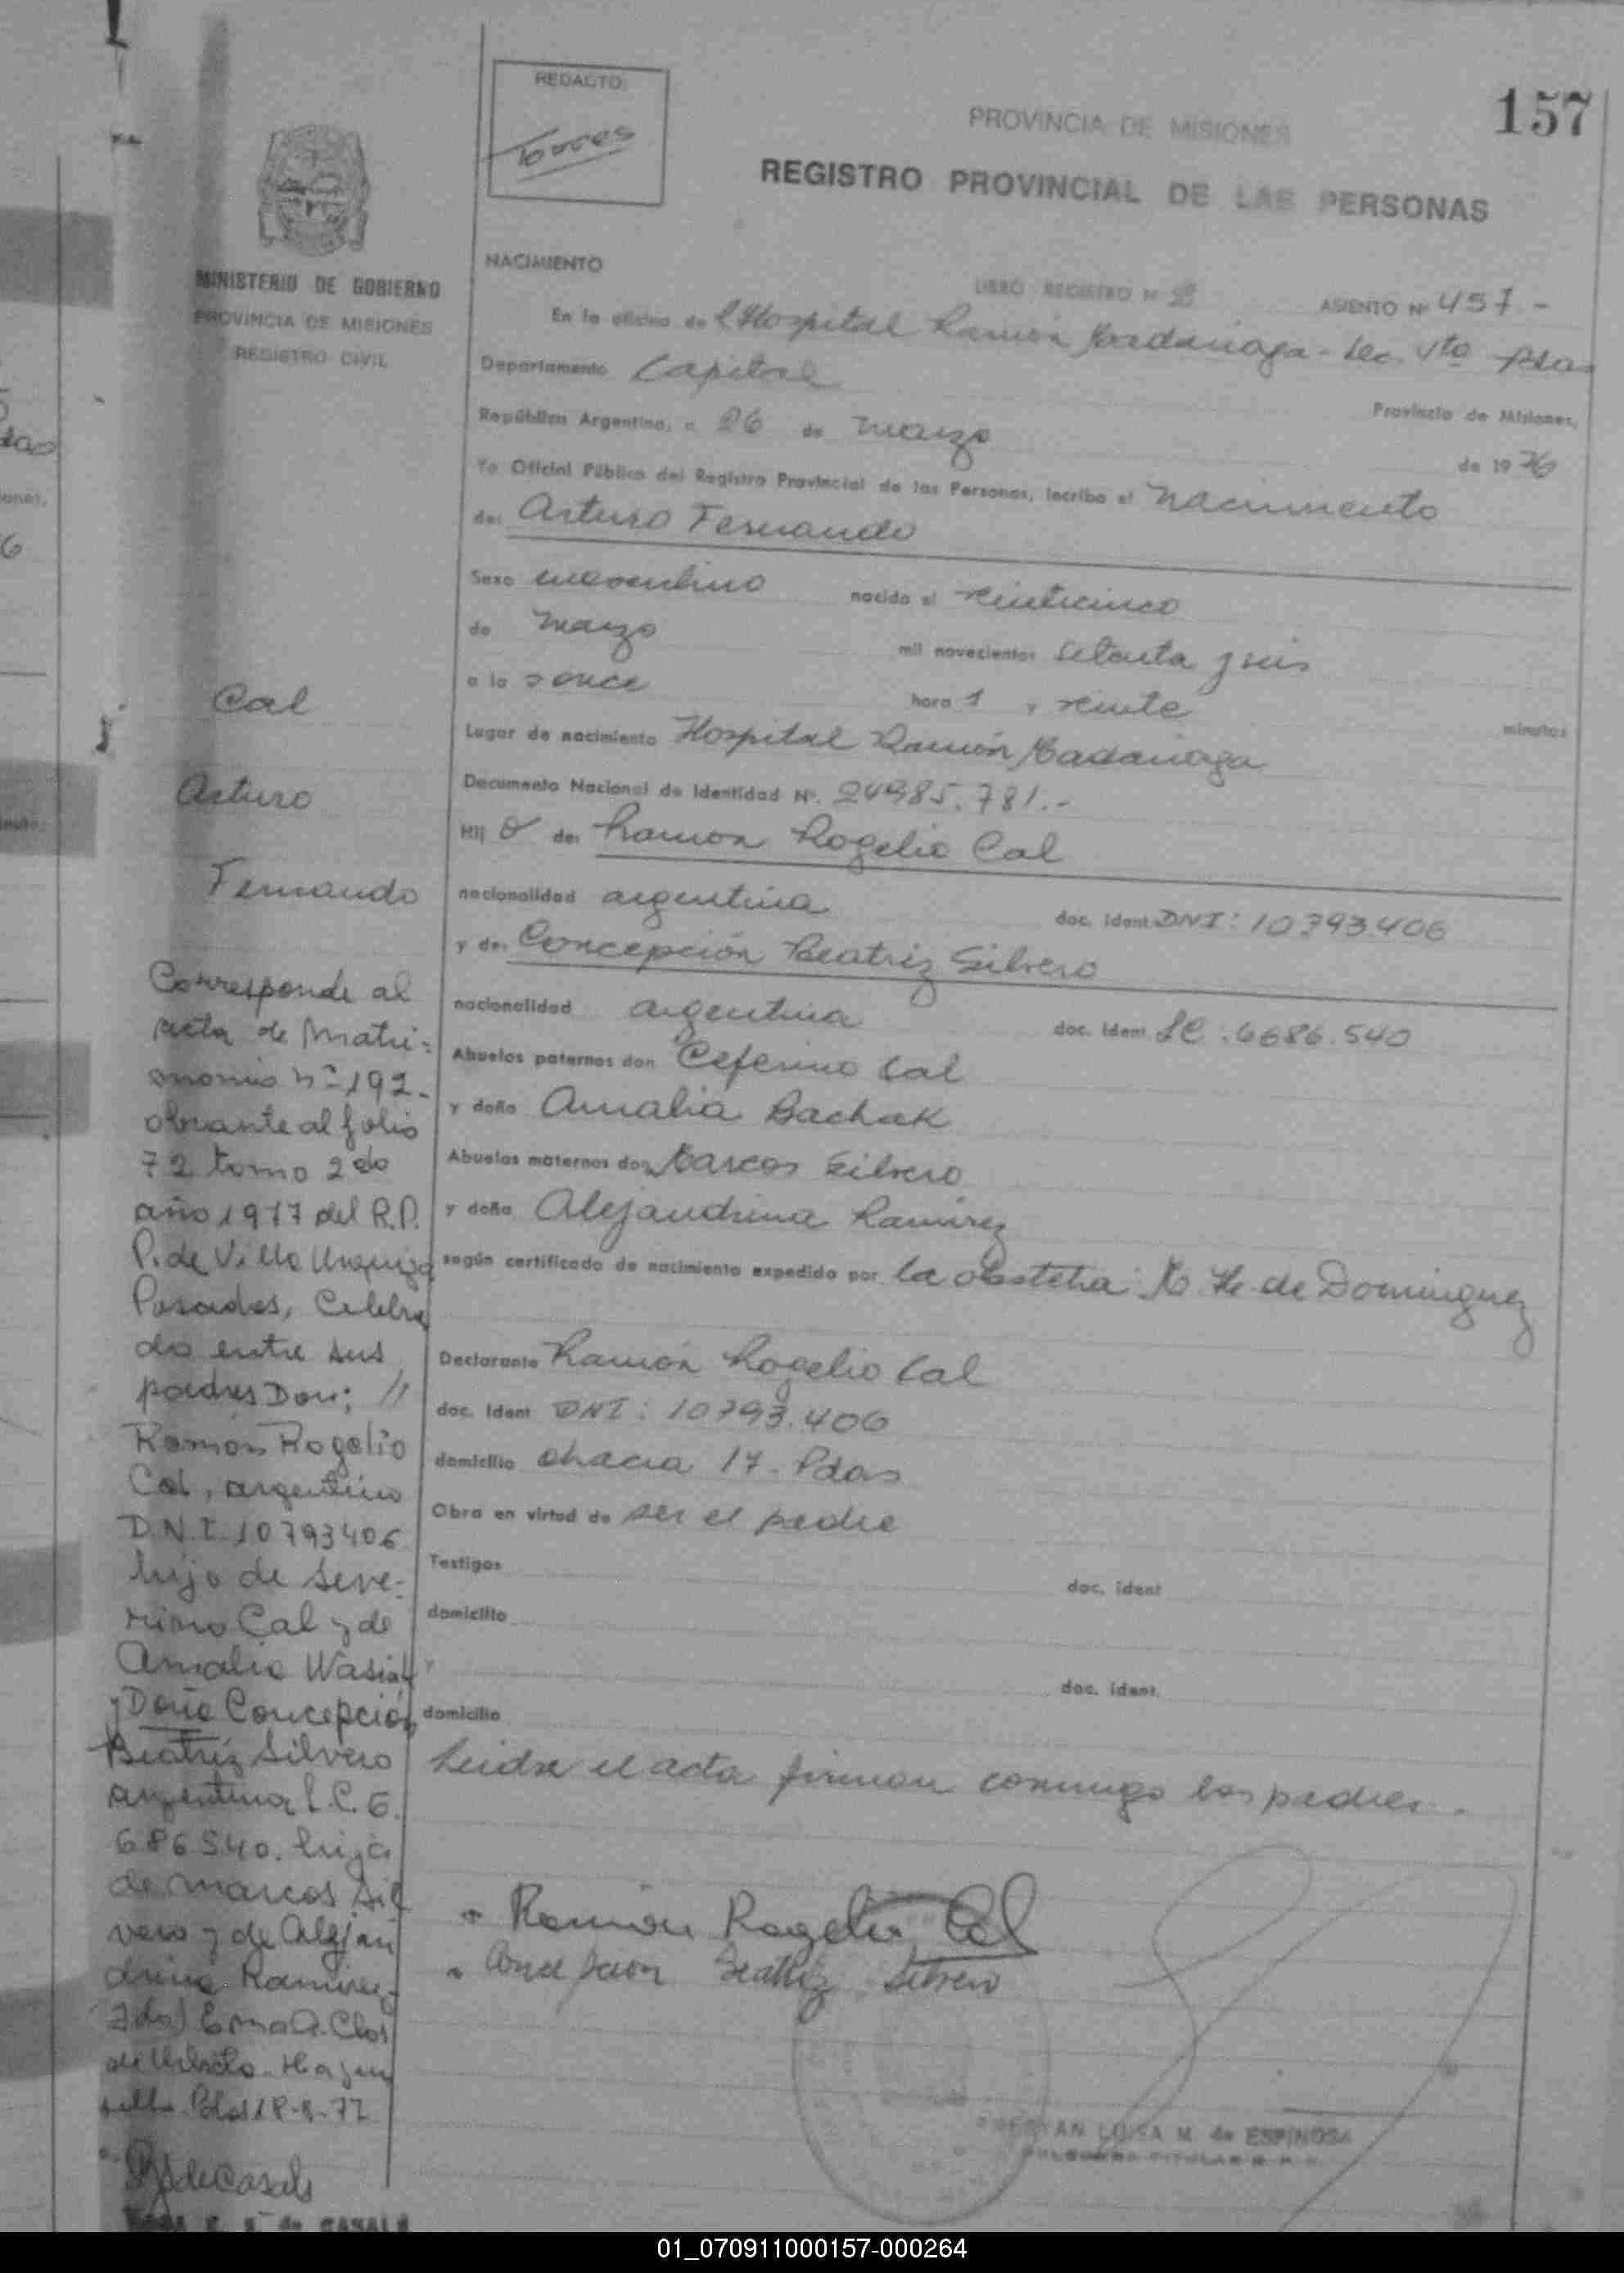 REDACTO:
Torres
157
PROVINCIA DE MISIONES
REGISTRO PROVINCIAL DE LAS PERSONAS
MINISTERIO DE GOBIERNO
PROVINCIA DE MISIONES
REGISTRO CIVIL
NACIMIENTO
LIBRO REGISTRO Nº
ASIENTO Nº 457 -
En la oficina del Hospital Ramón Madariaga - Sec. 4ta Pdas
Departamento Capital
Provincia de Misiones,
República Argentina, a 26 de marzo de 1976
Yo Oficial Público del Registro Provincial de las Personas, Incribo el nacimiento
de: Arturo Fernando
Sexo masculino nacido el veinticinco
de marzo mil novecientos setenta y seis
a la s once hora s y veinte minutos
Lugar de nacimiento Hospital Ramón Madariaga
Documento Nacional de Identidad Nº. 24985.781.-
Hij o de: Ramón Rogelio Cal
nacionalidad argentina doc. ident DNI: 10793406
y de: Concepción Beatriz Silvero
nacionalidad argentina doc. ident LC. 6686.540
Abuelos paternos don Ceferino Cal
y doña Amalia Bachak
Abuelos maternos don Marcos Silvero
y doña Alejandrina Ramírez
según certificado de nacimiento expedido por la obstetra: M. H. de Dominguez
Declarante Ramón Rogelio Cal
doc. ident DNI: 10793.406
domicilio chacra 17 - Pdas
Obra en virtud de ser el padre
Testigos doc. ident
domicilio
y doc. ident.
domicilio
Leída el acta firman conmigo los padres.
Ramón Rogelio Cal
Concepcion Beatriz Silvero
LUISA M. de ESPINOSA
Cal
Arturo
Fernando
Corresponde al
acta de Matri-
monio nº 192-
obrante al folio
72 tomo 2do
año 1977 del R.P.
P. de Villa Urquiza
Posadas, Celebra
do entre sus
padres Don; //
Ramón Rogelio
Cal, argentino
D.N.I. 10793406
hijo de Seve-
rino Cal y de
Amalia Wasiak
y Doña Concepción
Beatriz Silvero
argentina L.C. 6.
686540. hija
de Marcos Sil
vero y de Alejan
drina Ramirez
Fdo) Erma A. Clos
Hay un
sello. Pdas 18-8-77
de Casals
de CASALS
01_070911000157-000264